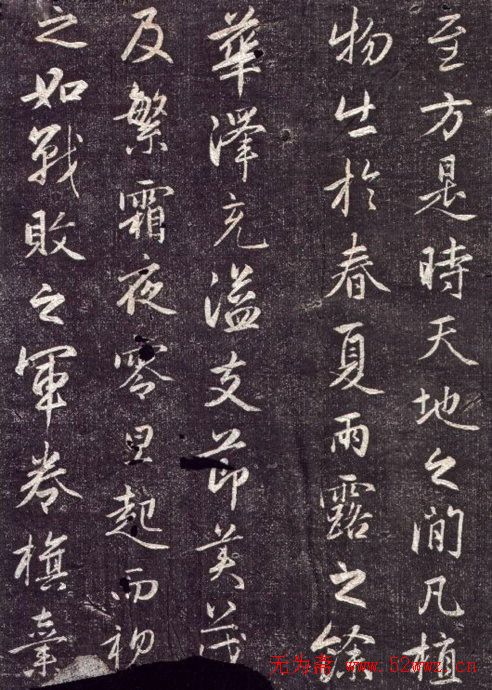 至方是時天地之間凡植
物出於春夏雨露之餘
華澤充溢支莭美茂
及繁霜夜零旦起而視
之如戰敗之軍卷旗棄
无为斋 www.52wwz.cn